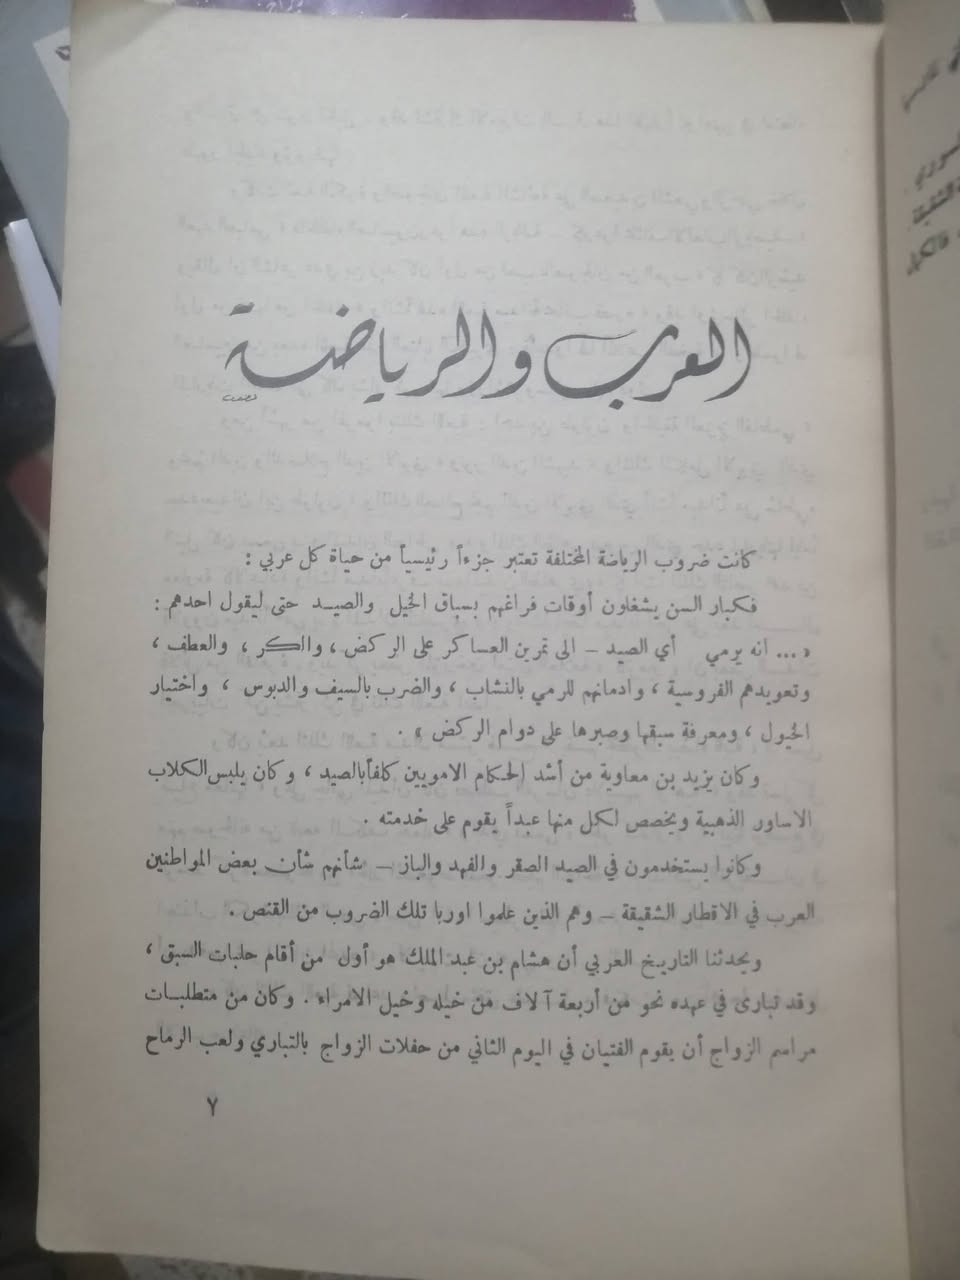 العرب والرياضة
كانت ضروب الرياضة المختلفة تعتبر جزءاً رئيسياً من حياة كل عربي :
فكبار السن يشغلون أوقات فراغهم بسباق الخيل والصيد حتى ليقول احدهم :
« ... انه يرمي أي الصيد – الى تمرين العساكر على الركض ، والكر ، والعطف ،
وتعويدهم الفروسية ، وادمانهم للرمي بالنشاب ، والضرب بالسيف والدبوس ، واختيار
الخيول ، ومعرفة سبقها وصبرها على دوام الركض » .
وكان يزيد بن معاوية من أشد الحكام الامويين كلفاً بالصيد ، وكان يلبس الكلاب
الاساور الذهبية ويخصص لكل منها عبداً يقوم على خدمته .
وكانوا يستخدمون في الصيد الصقر والفهد والباز – شأنهم شأن بعض المواطنين
العرب في الاقطار الشقيقة – وهم الذين علموا اوربا تلك الضروب من القنص .
ويحدثنا التاريخ العربي أن هشام بن عبد الملك هو أول من أقام حلبات السبق ،
وقد تبارى في عهده نحو من أربعة آلاف من خيله وخيل الامراء . وكان من متطلبات
مراسم الزواج أن يقوم الفتيان في اليوم الثاني من حفلات الزواج بالتباري ولعب الرماح
٧
السوري .
الشقيقة